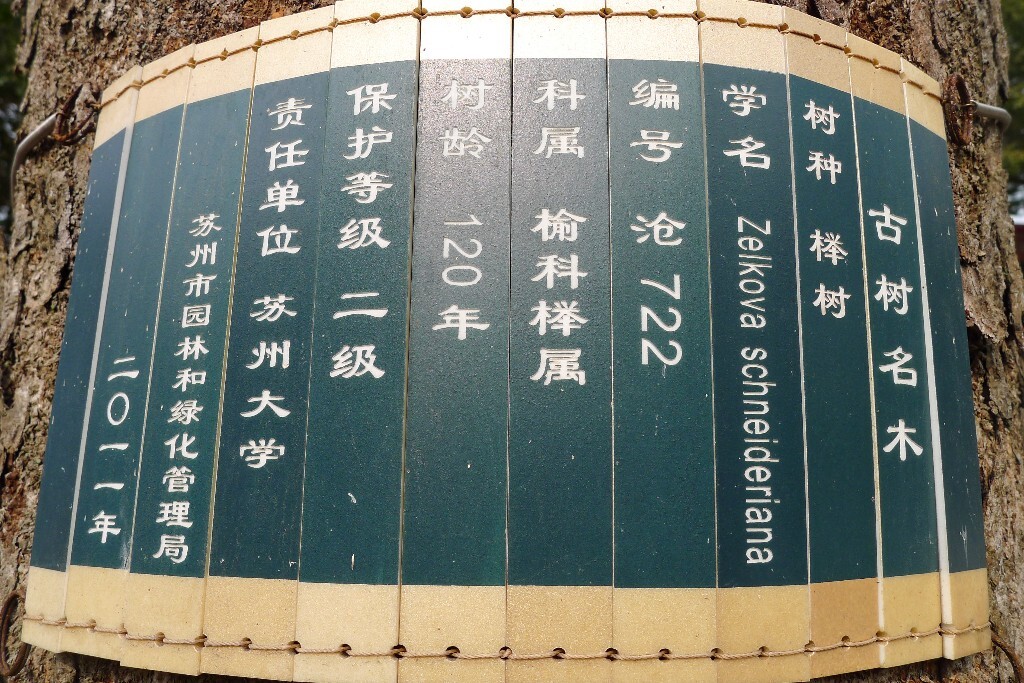 古树名木
树种 榉树
学名 Zelkova schneideriana
编号 沧 722
科属 榆科榉属
树龄 120年
保护等级 二级
责任单位 苏州大学
苏州市园林和绿化管理局
二〇一一年